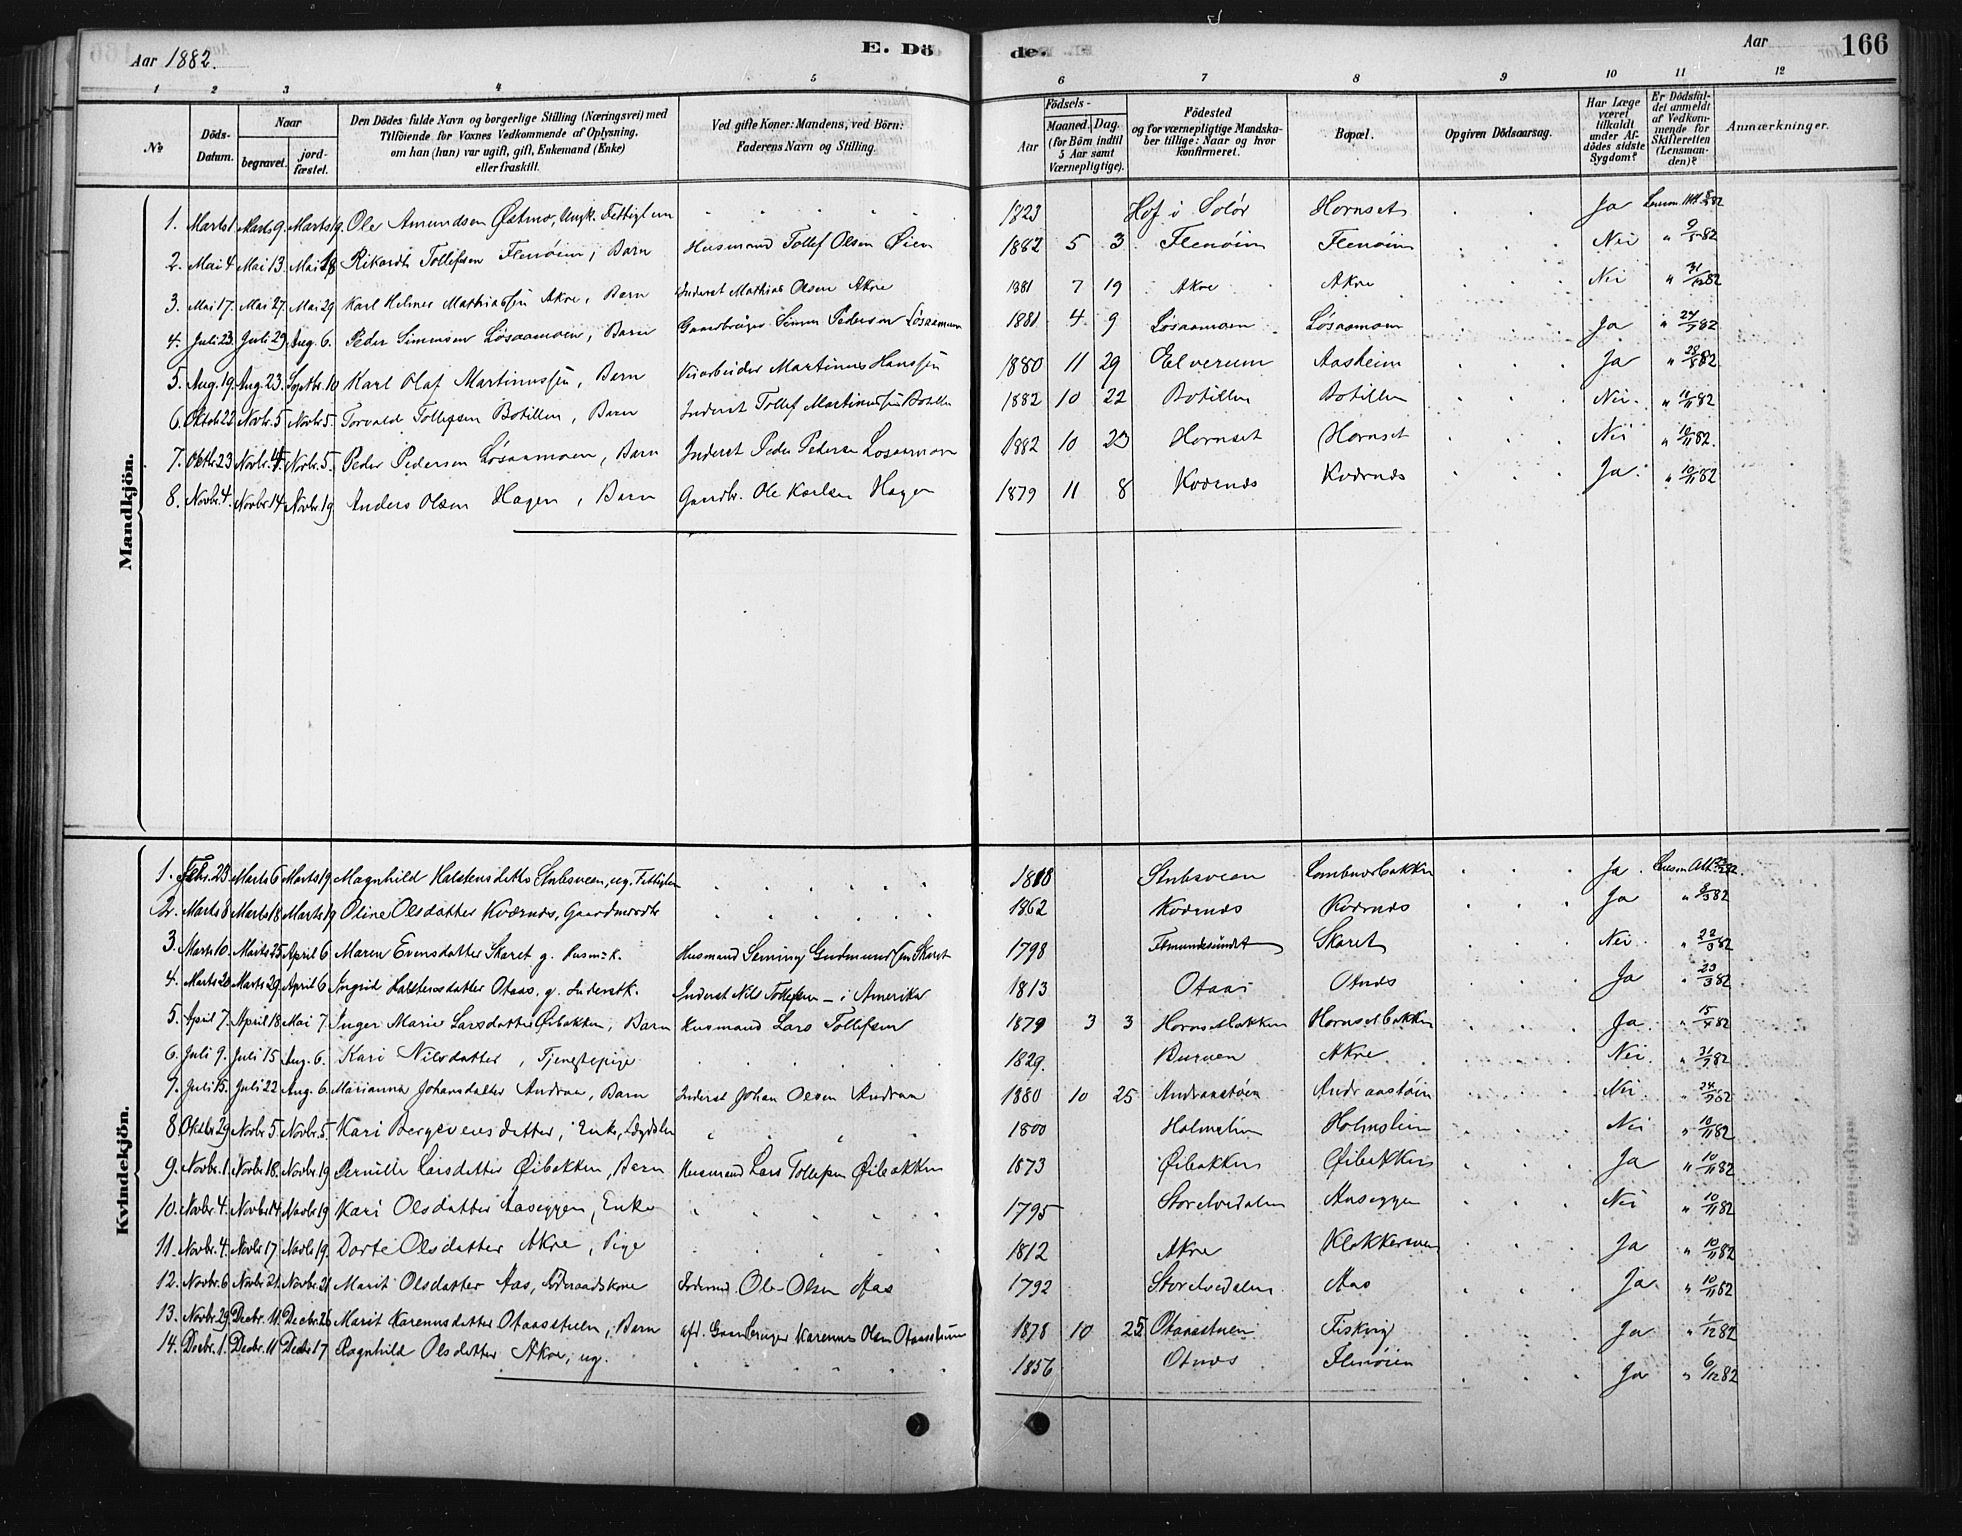 Aar 1882.
E. Döde.
Aar
166
1 2 3 4 5 6 7 8 9 10 11 12
No
Döds-Datum.
Naar
begravet.
jord-fæstet.
Den Dödes fulde Navn og borgerlige Stilling (Næringsvei) med Tilföiende for Voxnes Vedkommende af Oplysning, om han (hun) var ugift, gift, Enkemand (Enke) eller fraskilt.
Ved gifte Koner: Mandens, ved Börn: Faderens Navn og Stilling.
Födsels-
Aar
Maaned. Dag.
(for Börn indtil 5 Aar samt Værnepligtige).
Födested og for værnepligtige Mandskaber tillige: Naar og hvor konfirmeret.
Bopæl.
Opgiven Dödsaarsag.
Har Læge været tilkaldt under Afdödes sidste Sygdom?
Er Dödsfaldet anmeldt af Vedkommende for Skifteretten (Lensmanden)?
Anmærkninger.
Mandkjön.
1. Marts 1 Marts 9. Marts 19. Ole Amundsen Østmo, Ungk. Fattiglem 1823 Hof i Solør Hornset Ja
2. Mai 4 Mai 13. Mai 18 Rikardt Tollefsen Flenøien, Barn Husmand Tollef Olsen Øien 1882 5 3 Flenøien Flenøien Nei " 9/5 82
3. Mai 17. Mai 27. Mai 29 Karl Helmer Mathiassen Akre, Barn Inderst Mathias Olsen Akre 1881 7 19 Akre Akre Nei
4. Juli 23. Juli 29 Aug. 6. Peder Simensen Løsaamoen, Barn Gaardbruger Simen Pedersen Løsaamoen 1881 4 9 Løsaamoen Løsaamoen Ja " 24/7 82
5. Aug. 19. Aug. 23. Septbr. 10 Karl Olaf Martinussen, Barn Veiarbeider Martinus Hanssen 1880 11 29 Elverum Aasheim Ja " 28/8 82
6. Oktob. 22 Novbr. 5 Novbr. 5. Torvald Tollefsen Botillen, Barn Inderst Tollef Martinussen Botillen 1882 10 22 Botillen Botillen Nei. " 11/11 82
7. Oktbr. 23 Novbr. 5 Novbr. 5. Peder Pedersen Løsaamoen, Barn Inderst Peder Pedersen Løsaamoen 1882 10 23 Hornset Hornset Nei " 10/11 82.
8. Novbr. 4. Novbr. 14 Novbr. 19 Anders Olsen Hagen, Barn Gaardbr. Ole Karlsen Hagen 1879 11 8 Kværnæs Kværnæs Ja " 10/11 82
Kvindekjön.
1. Febr. 23 Marts 6 Marts 19 Magnhild Halstensdatter Stubsveen, ug. Fattiglem 1818 Stubsveen Ja.
2. Marts 8 Marts 18 Marts 19 Oline Olsdatter Kværnæs, 1862 Kværnæs Kværnæs Ja " 8/3 82
3. Marts 10. Marts 25 April 6 Maren Evensdatter Skaret g. Husm.k. Husmand Seming Gudmundssen Skaret 1798 Femundsundet Skaret Nei " 22/3 82
4. Marts 20 Marts 29 April 6 Ingrid Halstensdatter Otaas. g. Inderstk. Inderst Nils Tollefsen – i Amerika 1813 Otaas Otnæs Ja " 23/3 82
5. April 7. April 18 Mai 7. Inger Marie Larsdatter Øibakken, Barn Husmand Lars Tollefsen 1879 3 3 Hornsetbakken Hornsetbakken Ja. " 15/4 82
6. Juli 9. Juli 15 Aug. 6. Kari Nilsdatter, Tjenestepige 1829. Buruen Akre Nei.
7. Juli 15. Juli 22 Aug. 6. Marianna Johansdatter Andraa, Barn Inderst Johan Olsen Andraa 1880 10 25 Andraastøen Andraastøen Nei
8. Oktbr. 29 Novbr. 5. Novbr. 5. Kari Bergsvensdatter, Enke, Lægdslem 1800 Holmslien Holmslien Nei " 10/11 82
9. Novbr. 1. Novbr. 18. Novbr. 19 Pernille Larsdatter Øibakken, Barn Husmand Lars Tollefsen Øibakken 1873 Øibakken Øibakken Ja " 10/11 82
10. Novbr. 4. Novbr. 14 Novbr. 19 Kari Olsdatter Aaseggen, Enke 1795 Storelvedalen Aaseggen Nei " 10/11 82
11. Novbr. 4. Novbr. 17 Novbr. 19. Dorte Olsdatter Akre, Pige 1812 Akre Klokkersveen Ja " 10/11 82
12. Novbr. 6 Novbr. 21. Novbr. 21 Marit Olsdatter Aas, Føderaadskone Ole Olsen Aas 1792 Storelvedalen. Aas Ja " 10/11 82
13. Novbr. 29 Decbr. 11. Decbr. 26 Marit Karenusdatter Otaasstuen, Barn afd. Gaardbruger Karenus Olsen Otaasstuen 1878 10 25 Otaasstuen Fiskvig Ja " 1/12 82
14. Decbr. 1. Decbr. 11 Decbr. 17 Ragnhild Olsdatter Akre, ug. 1856 Otnæs Flenøien Ja " 6/12 82